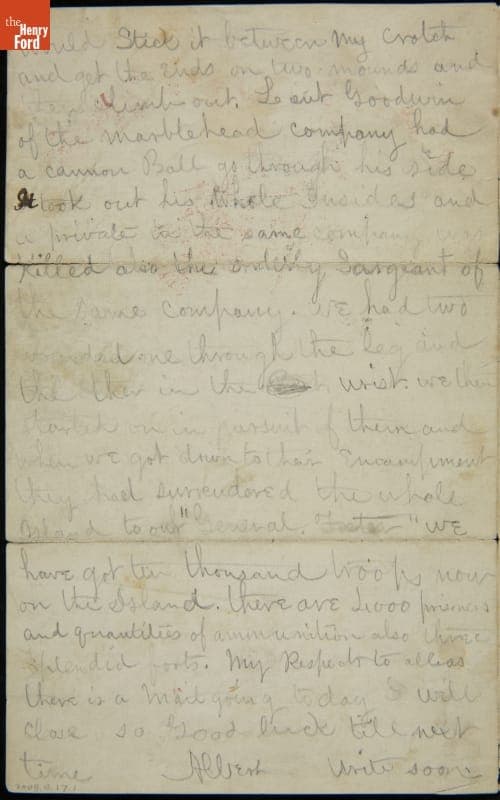 the
Henry
Ford
would Stick it between my crotch
and get the ends on two mounds and
climb out. Leut Goodwin
of the marblehead company had
a cannon Ball go through his side
It took out his whole Insides and
a private in the same company was
killed also the ordinly Sargeant of
the same company. we had two
wounded one through the leg and
the ther in the wrist. we then
started on in pursuit of them and
when we got down to their Encampment
they had surrendered the whole
Island to our "General. Foster" we
have got ten thousand troops now
on the Island. there are 2,000 prisoners
and quantities of ammunition also three
splendid forts. My Respects to all as
there is a Mail going today I will
close so Good luck till next
time Albert Write soon